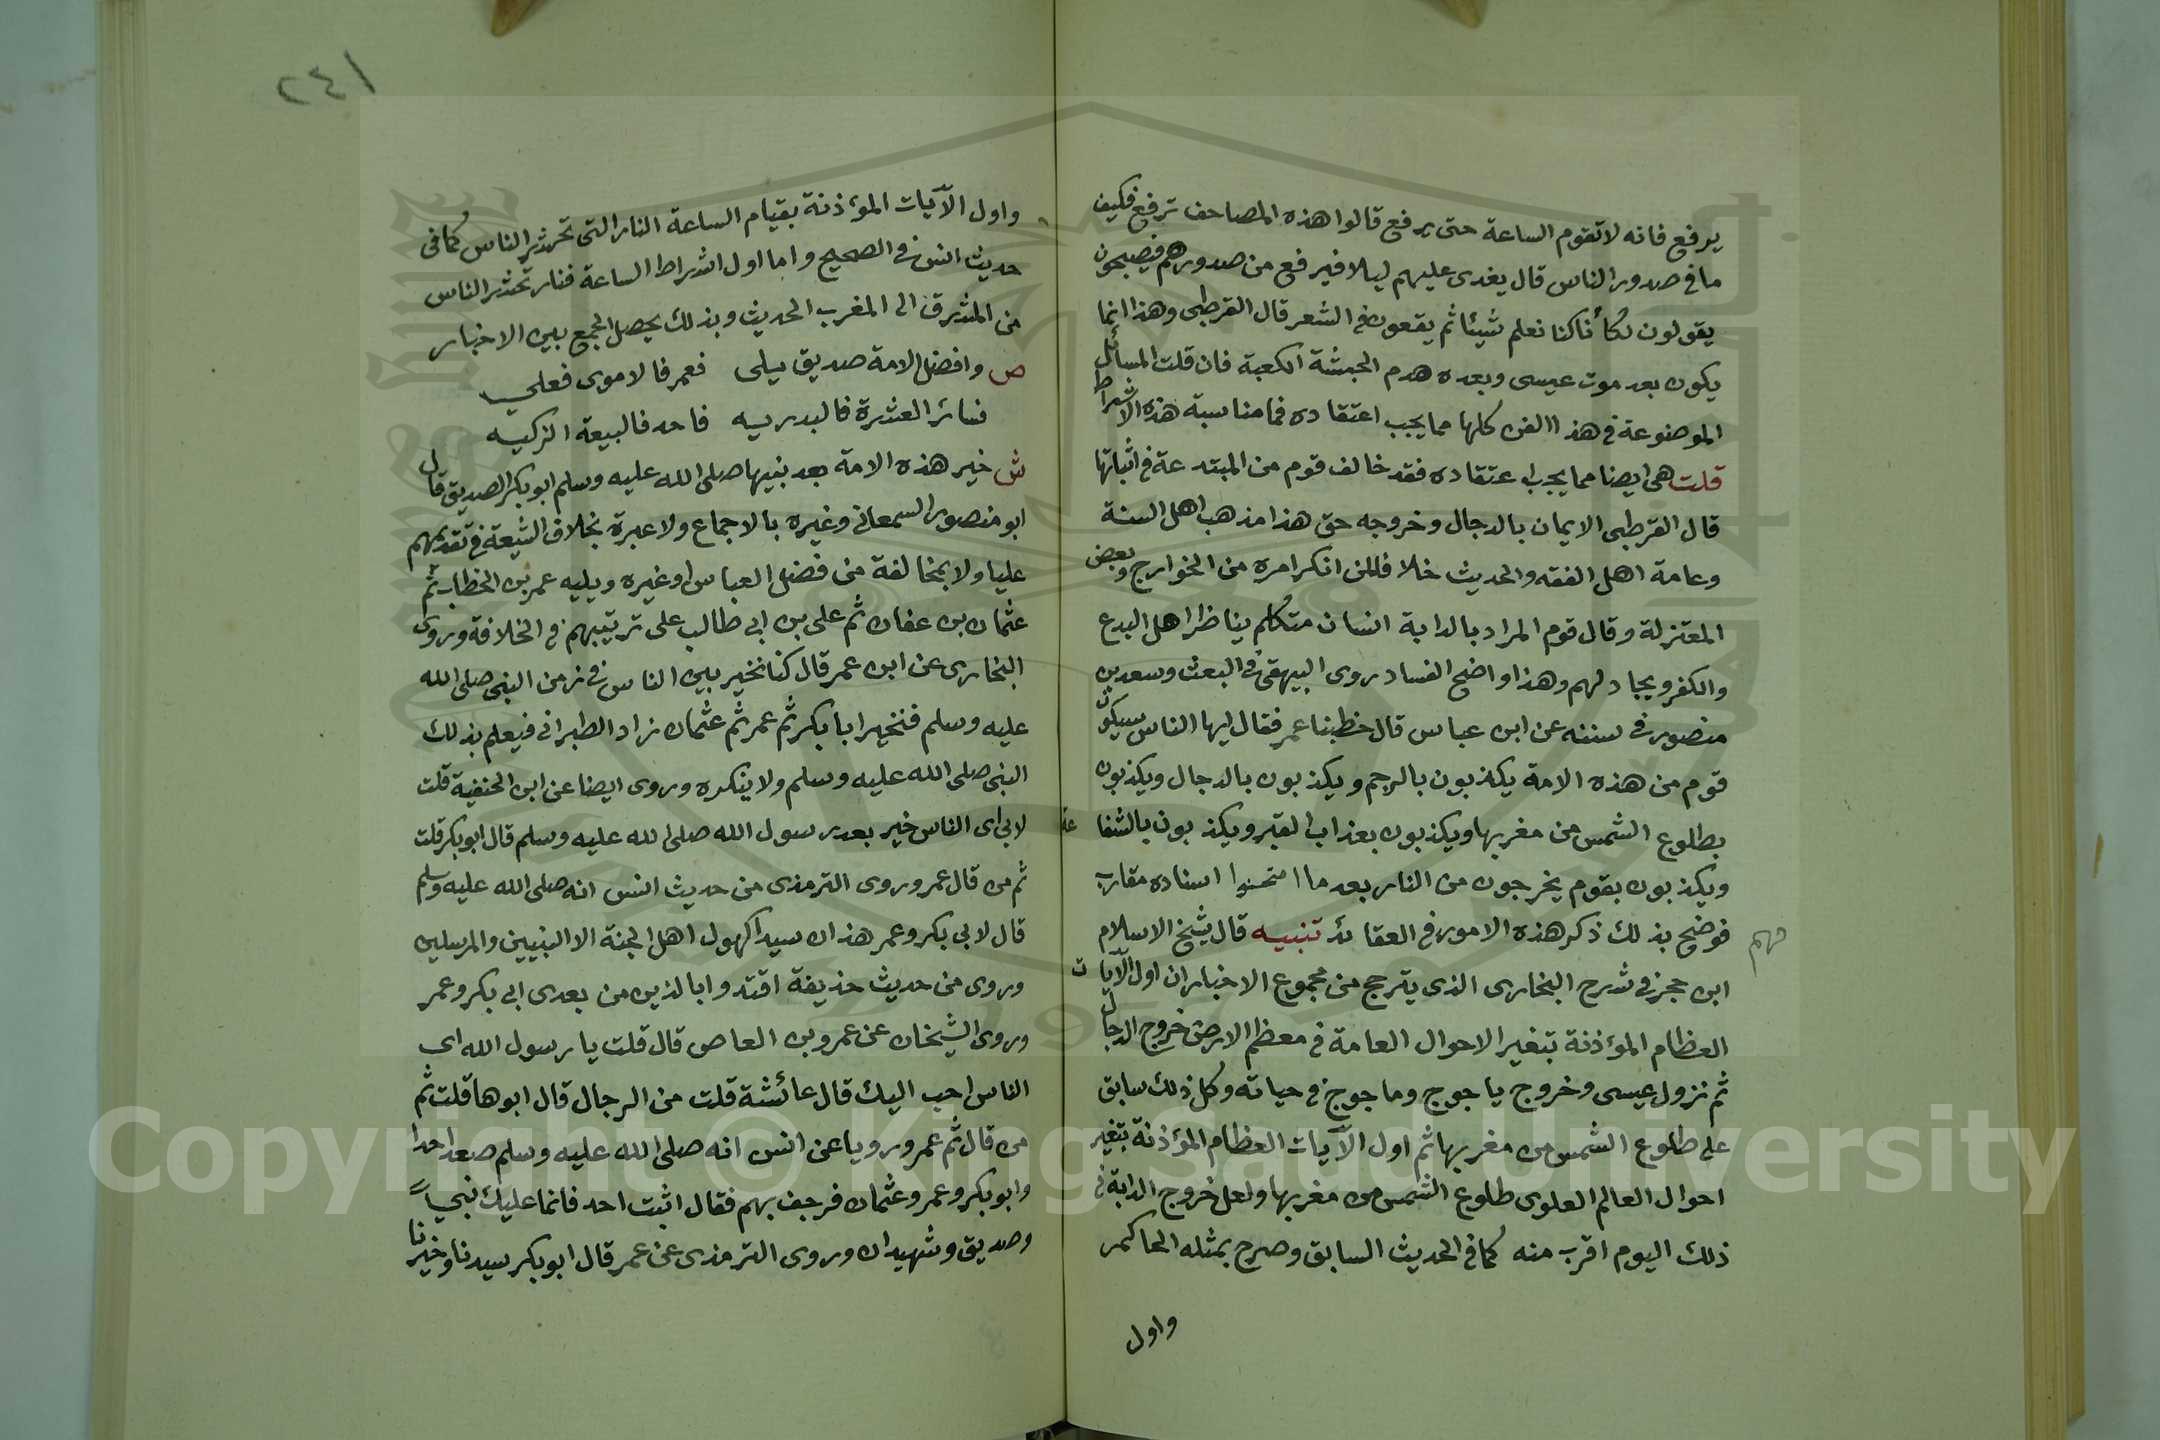 يرفع فانه لا تقوم الساعة حتى يرفع قالوا هذه المصاحف ترفع فكيف
ما في صدور الناس قال يغدى عليهم ليلا فيرفع من صدورهم فيصبحون
يقولون لكأنا كنا نعلم شيئا ثم يقعون في الشعر قال القرطبى وهذا انما
يكون بعد موت عيسى وبعده هدم الحبشة الكعبة فان قلت المسائل
الموضوعة في هذا الفن كلها مما يجب اعتقاده فما مناسبة هذه الاشراط
قلت هى ايضا مما يجب اعتقاده فقد خالف قوم من المبتدعة في اثباتها
قال القرطبى الايمان بالدجال وخروجه حق هذا مذهب اهل السنة
وعامة اهل الفقه والحديث خلافا لمن انكر امره من الخوارج وبعض
المعتزلة وقال قوم المراد بالدابة انسان متكلم يناظر اهل البدع
والكفر ويجادلهم وهذا واضح الفساد روى البيهقى في البعث وسعد بن
منصور في سننه عن ابن عباس قال خطبنا عمر فقال ايها الناس سيكون
قوم من هذه الامة يكذبون بالرجم ويكذبون بالدجال ويكذبون
بطلوع الشمس من مغربها ويكذبون بعذاب القبر ويكذبون بالشفا عة
ويكذبون بقوم يخرجون من النار بعد ما امتحسوا اسناده مقارب
فوضح بذلك ذكر هذه الامور في العقائد تنبيه قال شيخ الاسلام
مهم
ابن حجر في شرح البخارى الذى يترجح من مجموع الاخبار ان اول الآيات
العظام المؤذنة بتغير الاحوال العامة في معظم الارض خروج الدجال
ثم نزول عيسى وخروج ياجوج وماجوج في حياته وكل ذلك سابق
على طلوع الشمس من مغربها ثم اول الآيات العظام المؤذنة بتغير
احوال العالم العلوى طلوع الشمس من مغربها ولعل خروج الدابة في
ذلك اليوم اقرب منه كما في الحديث السابق وصرح بمثله الحاكم
واول
٢٤١
واول الآيات المؤذنة بقيام الساعة النار التى تحشر الناس كما فى
حديث انس في الصحيح واما اول اشراط الساعة فنار تحشر الناس
من المشرق الى المغرب الحديث وبذلك يحصل الجمع بين الاخبار
ص وافضل الامة صديق يلى فعمر فالاموى فعلي
فسائر العشرة فالبدريه فاحد فالبيعة الزكيه
ش خير هذه الامة بعد نبيها صلى الله عليه وسلم ابو بكر الصديق قال
ابو منصور السمعانى وغيره بالاجماع ولا عبرة بخلاف الشيعة في تقديمهم
عليا ولا بمخالفة من فضل العباس او غيره ويليه عمر بن الخطاب ثم
عثمان بن عفان ثم على بن ابى طالب على ترتيبهم في الخلافة وروى
البخارى عن ابن عمر قال كنا نخير بين الناس في زمن النبى صلى الله
عليه وسلم فنخير ابا بكر ثم عمر ثم عثمان زاد الطبرانى فيعلم بذلك
النبى صلى الله عليه وسلم ولا ينكره وروى ايضا عن ابن الحنفية قلت
لابى اى الناس خير بعد رسول الله صلى الله عليه وسلم قال ابو بكر قلت
ثم من قال عمر وروى الترمذى من حديث انس انه صلى الله عليه وسلم
قال لابى بكر وعمر هذان سيدا كهول اهل الجنة الا النبيين والمرسلين
وروى من حديث حذيفة اقتدوا بالذين من بعدى ابى بكر وعمر
وروى الشيخان عن عمرو بن العاص قال قلت يا رسول الله اى
الناس احب اليك قال عائشة قلت من الرجال قال ابوها قلت ثم
من قال ثم عمر ورويا عن انس انه صلى الله عليه وسلم صعد احدا
وابو بكر وعمر وعثمان فرجف بهم فقال اثبت احد فانما عليك نبي
وصديق وشهيدان وروى الترمذى عن عمر قال ابو بكر سيدنا وخيرنا
Copyright © King Saud University